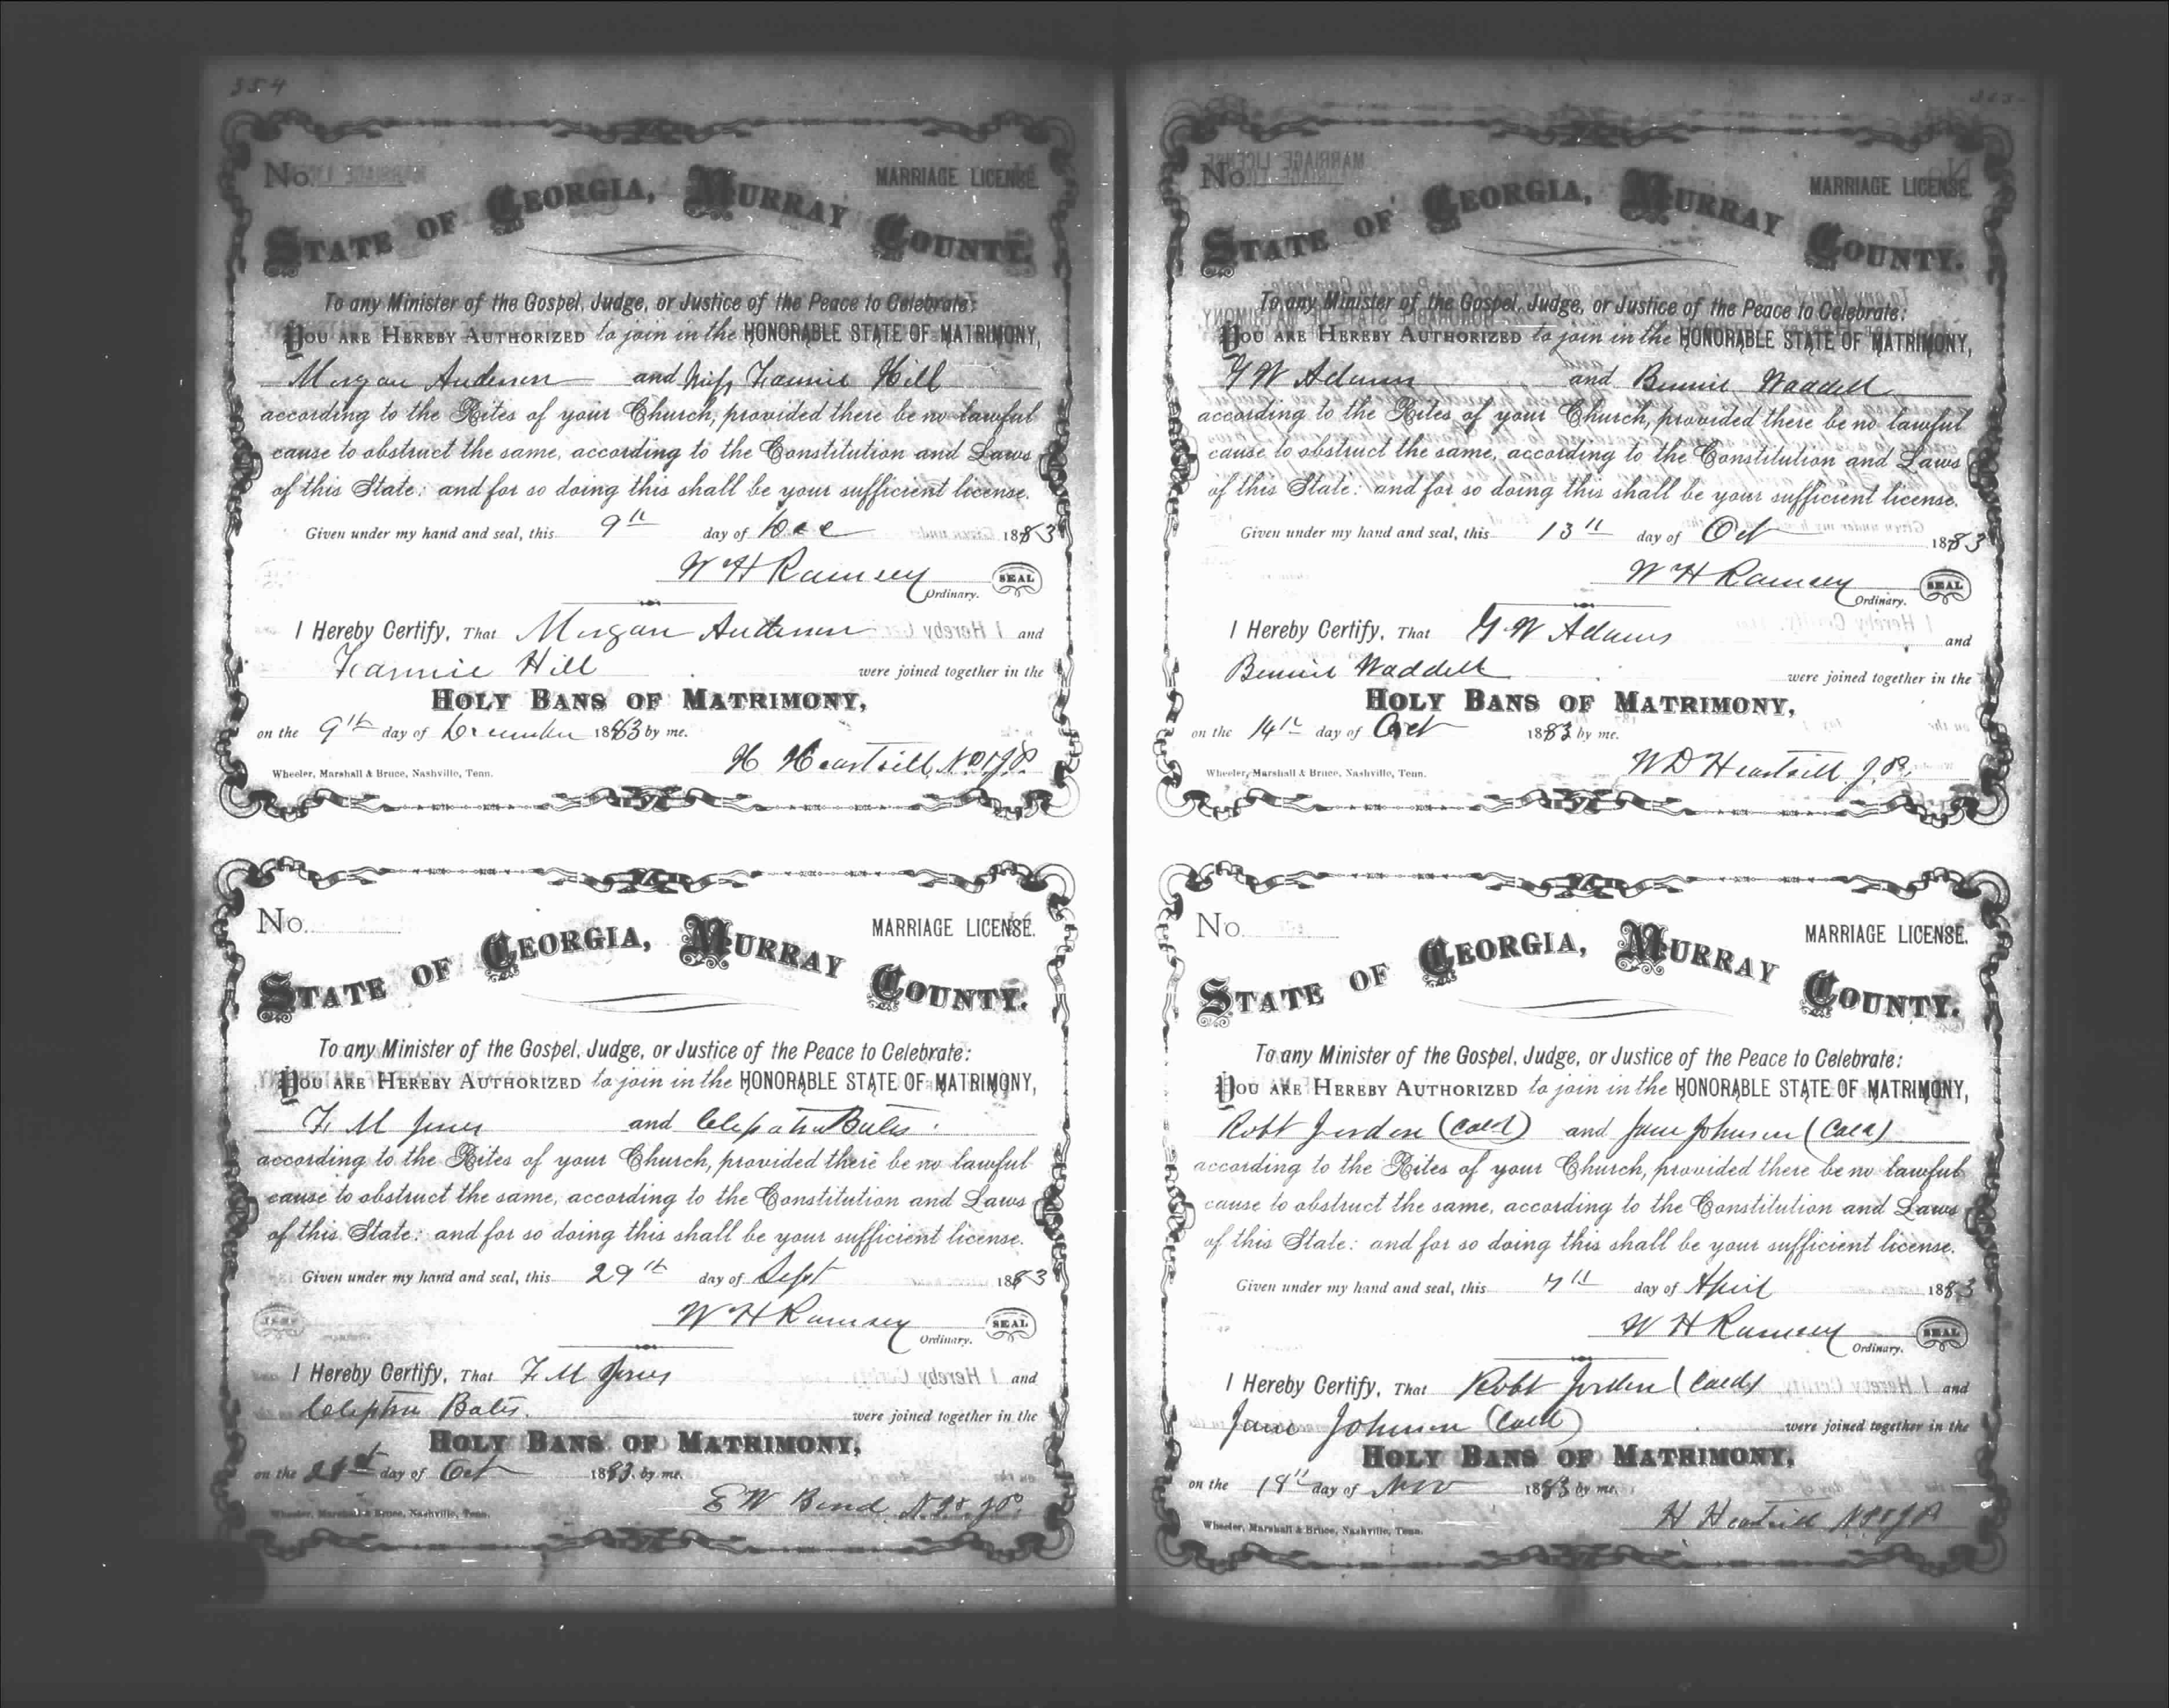 354
No.
MARRIAGE LICENSE.
STATE OF GEORGIA, MURRAY COUNTY.
To any Minister of the Gospel, Judge, or Justice of the Peace to Celebrate:
YOU ARE HEREBY AUTHORIZED to join in the HONORABLE STATE OF MATRIMONY,
Morgan Anderson and Miss Fannie Hill
according to the Rites of your Church, provided there be no lawful
cause to obstruct the same, according to the Constitution and Laws
of this State: and for so doing this shall be your sufficient license.
Given under my hand and seal, this 9th day of Dec 1883
W H Ramsey SEAL
Ordinary.
I Hereby Certify, THAT Morgan Anderson and
Fannie Hill were joined together in the
HOLY BANS OF MATRIMONY,
on the 9th day of December 1883 by me.
H Heartsill, N.P. & J.P.
Wheeler, Marshall & Bruce, Nashville, Tenn.
No.
MARRIAGE LICENSE.
STATE OF GEORGIA, MURRAY COUNTY.
To any Minister of the Gospel, Judge, or Justice of the Peace to Celebrate:
YOU ARE HEREBY AUTHORIZED to join in the HONORABLE STATE OF MATRIMONY,
F. M Jones and Clepatra Bates
according to the Rites of your Church, provided there be no lawful
cause to obstruct the same, according to the Constitution and Laws
of this State: and for so doing this shall be your sufficient license.
Given under my hand and seal, this 29th day of Sept 1883
W H Ramsey SEAL
Ordinary.
I Hereby Certify, THAT F. M Jones and
Bates. were joined together in the
HOLY BANS OF MATRIMONY,
on the day of Oct 1883 by me.
E W Bond N.P. & J.P.
Wheeler, Marshall & Bruce, Nashville, Tenn.
No.
MARRIAGE LICENSE.
STATE OF GEORGIA, MURRAY COUNTY.
To any Minister of the Gospel, Judge, or Justice of the Peace to Celebrate:
YOU ARE HEREBY AUTHORIZED to join in the HONORABLE STATE OF MATRIMONY,
G W Adams and Bennie Waddell
according to the Rites of your Church, provided there be no lawful
cause to obstruct the same, according to the Constitution and Laws
of this State: and for so doing this shall be your sufficient license.
Given under my hand and seal, this 13th day of Oct 1883
W H Ramsey SEAL
Ordinary.
I Hereby Certify, THAT G W Adams and
Bennie Waddell were joined together in the
HOLY BANS OF MATRIMONY,
on the 14th day of Oct 1883 by me.
W D Heartsill J.P.
Wheeler, Marshall & Bruce, Nashville, Tenn.
No.
MARRIAGE LICENSE.
STATE OF GEORGIA, MURRAY COUNTY.
To any Minister of the Gospel, Judge, or Justice of the Peace to Celebrate:
YOU ARE HEREBY AUTHORIZED to join in the HONORABLE STATE OF MATRIMONY,
Robt Jorden (Cold) and Jane Johnson (Cold)
according to the Rites of your Church, provided there be no lawful
cause to obstruct the same, according to the Constitution and Laws
of this State: and for so doing this shall be your sufficient license.
Given under my hand and seal, this 7th day of April 1883
W H Ramsey SEAL
Ordinary.
I Hereby Certify, THAT Robt Jorden (Cold) and
Jane Johnson (Cold) were joined together in the
HOLY BANS OF MATRIMONY,
on the 18th day of Nov 1883 by me.
H Heartsill N P & J P
Wheeler, Marshall & Bruce, Nashville, Tenn.